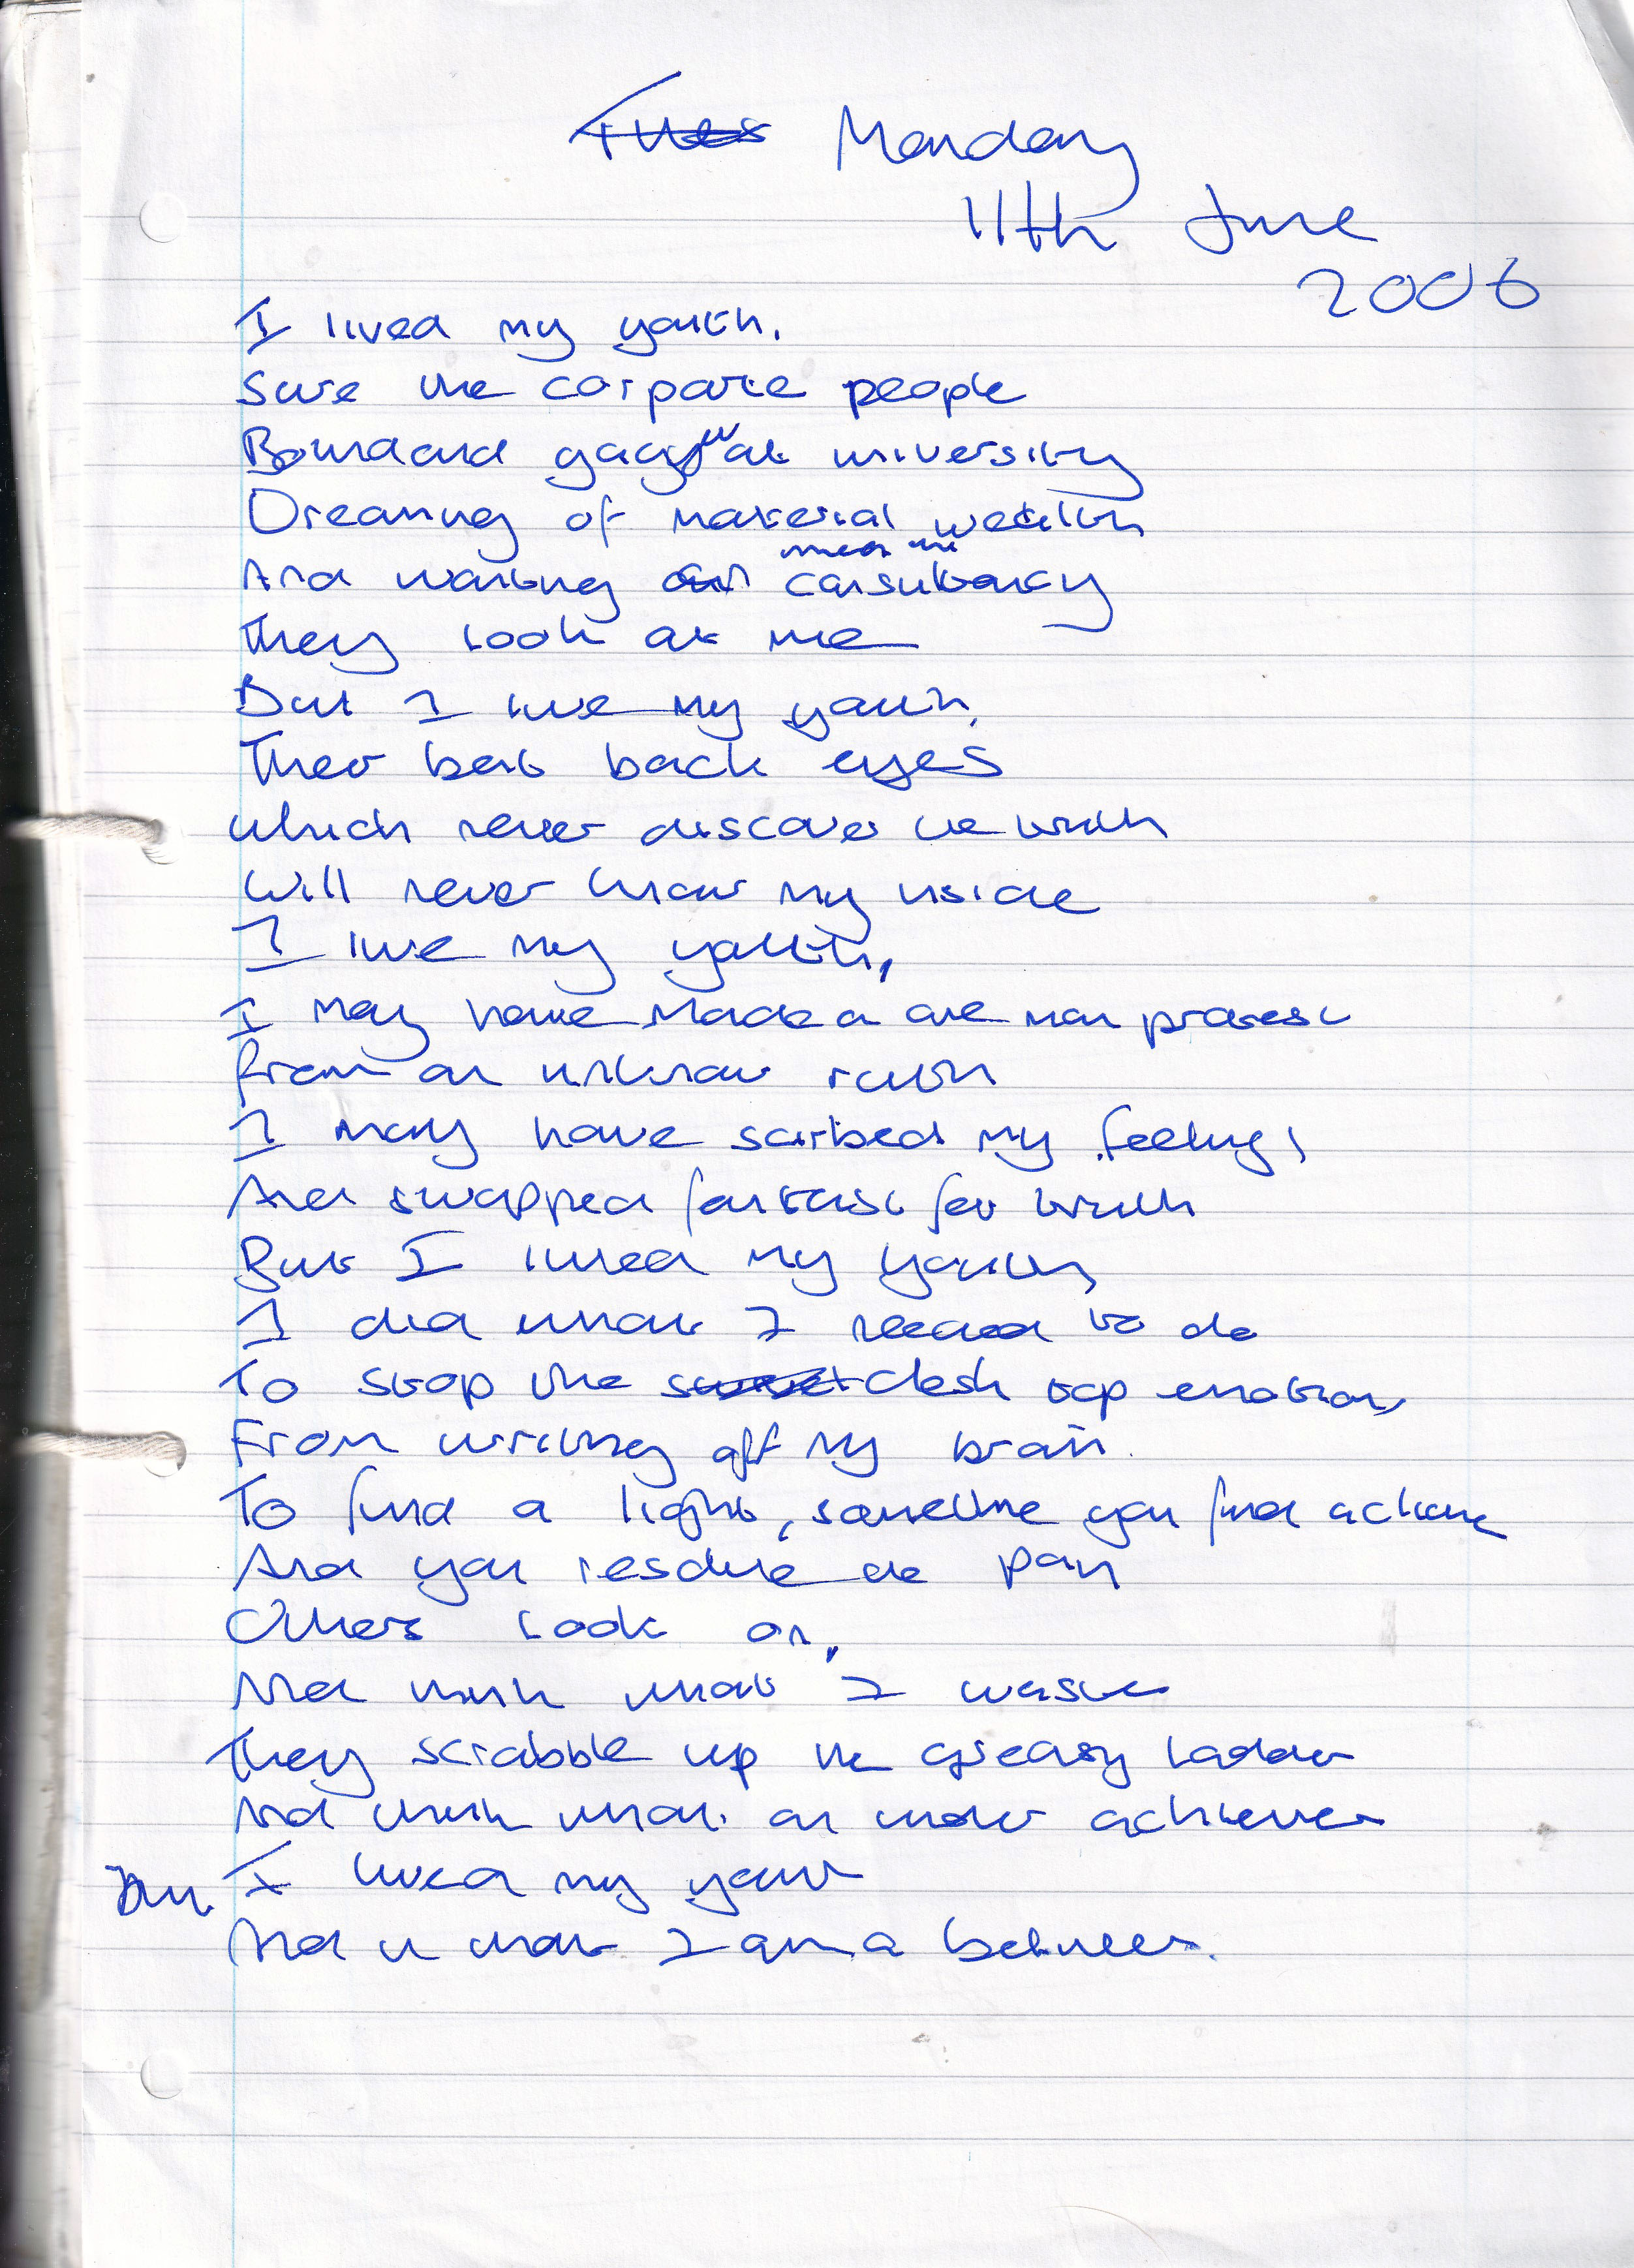 Tues Monday
11th June
2006
I lived my youth.
Sure the corparte people
at university
Dreaming of material wealth
And waiting consultancy
They look at me
But I live my youth,
Their back eyes
Which never discover the truth
Will never know my inside
I live my youth,
I may have made a one man protest
From an unknow
I may have scribed my feelings
And swapped fantasi for truth
But I lived my youth,
I did what I needed to do
To stop the clash emotions
From writing off my brain.
To find a light, sometime you find a chance
And you the pain
Others look on,
And think what I waste
They scrabble up the greasy ladder
And think what an under achiever
But I lived my youth
And I am a believer.